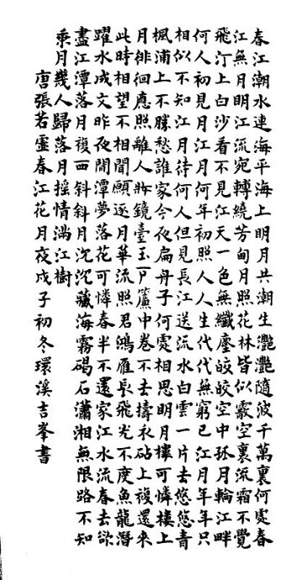 春江潮水連海平海上明月共潮生灩灩隨波千萬裏何處春
江無月明江流宛轉繞芳甸月照花林皆似霰空裏流霜不覺
飛汀上白沙看不見江天一色無纖塵皎皎空中孤月輪江畔
何人初見月江月何年初照人人生代代無窮已江月年年只
相似不知江月待何人但見長江送流水白雲一片去悠悠青
楓浦上不勝愁誰家今夜扁舟子何處相思明月樓可憐樓上
月徘徊應照離人妝鏡臺玉戶簾中卷不去擣衣砧上複還來
此時相望不相聞願逐月華流照君鴻雁長飛光不度魚龍潛
躍水成文昨夜閒潭夢落花可憐春半不還家江水流春去欲
盡江潭落月複西斜斜月沉沉藏海霧碣石瀟湘無限路不知
乘月幾人歸落月搖情滿江樹
唐張若虛春江花月夜戊子初冬環溪吉峯書